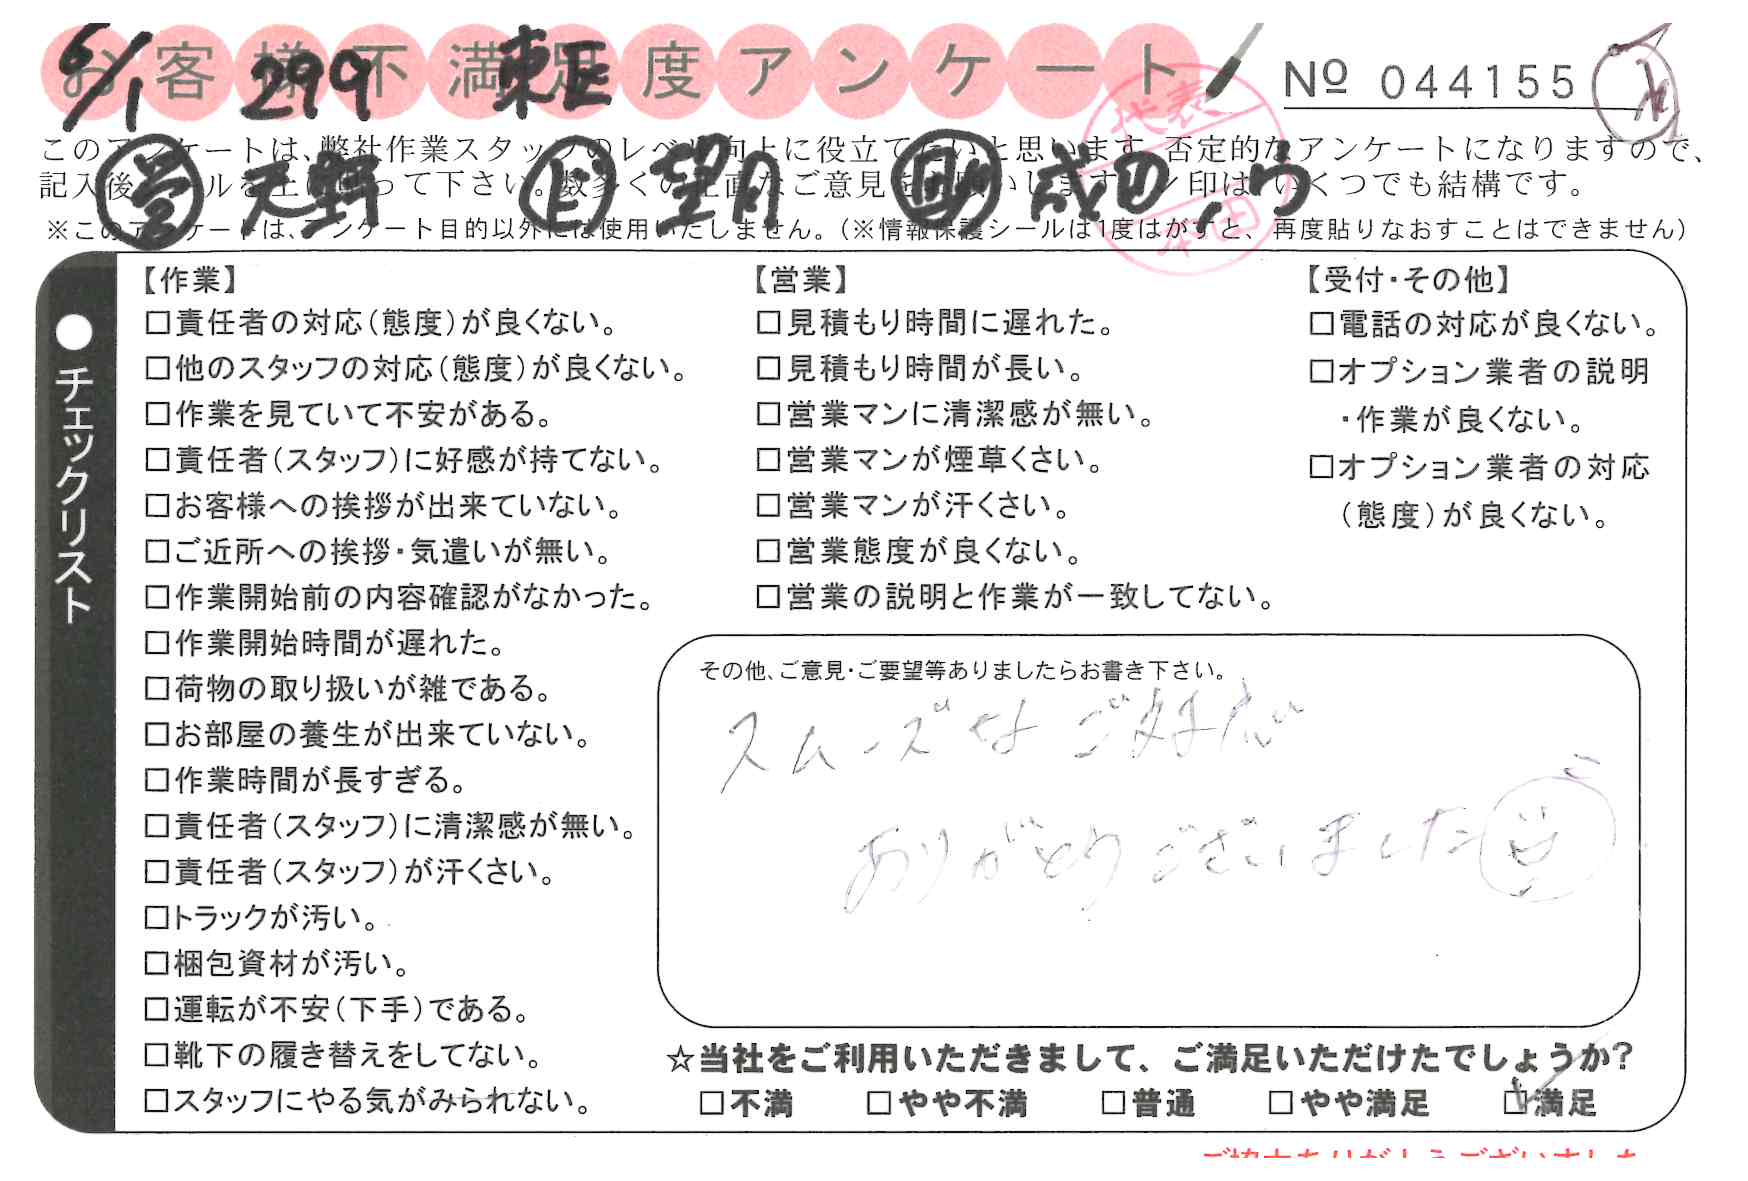 お客様不満足度アンケート
6/1 299 東正
Nº 044155
このアンケートは、弊社作業スタッフのレベル向上に役立てたいと思います。否定的なアンケートになりますので、
記入後シールを上に貼って下さい。数多くの正直なご意見をお願いします。レ印は、いくつでも結構です。
営 天野 望月 成田
代表
※このアンケートは、アンケート目的以外には使用いたしません。(※情報保護シールは1度はがすと、再度貼りなおすことはできません)
●チェックリスト
【作業】
□責任者の対応(態度)が良くない。
□他のスタッフの対応(態度)が良くない。
□作業を見ていて不安がある。
□責任者(スタッフ)に好感が持てない。
□お客様への挨拶が出来ていない。
□ご近所への挨拶・気遣いが無い。
□作業開始前の内容確認がなかった。
□作業開始時間が遅れた。
□荷物の取り扱いが雑である。
□お部屋の養生が出来ていない。
□作業時間が長すぎる。
□責任者(スタッフ)に清潔感が無い。
□責任者(スタッフ)が汗くさい。
□トラックが汚い。
□梱包資材が汚い。
□運転が不安(下手)である。
□靴下の履き替えをしてない。
□スタッフにやる気がみられない。
【営業】
□見積もり時間に遅れた。
□見積もり時間が長い。
□営業マンに清潔感が無い。
□営業マンが煙草くさい。
□営業マンが汗くさい。
□営業態度が良くない。
□営業の説明と作業が一致してない。
【受付・その他】
□電話の対応が良くない。
□オプション業者の説明
・作業が良くない。
□オプション業者の対応
(態度)が良くない。
その他、ご意見・ご要望等ありましたらお書き下さい。
スムーズなご対応
ありがとうございました
☆当社をご利用いただきまして、ご満足いただけたでしょうか?
□不満 □やや不満 □普通 □やや満足 ☑満足
ご協力ありがとうございました